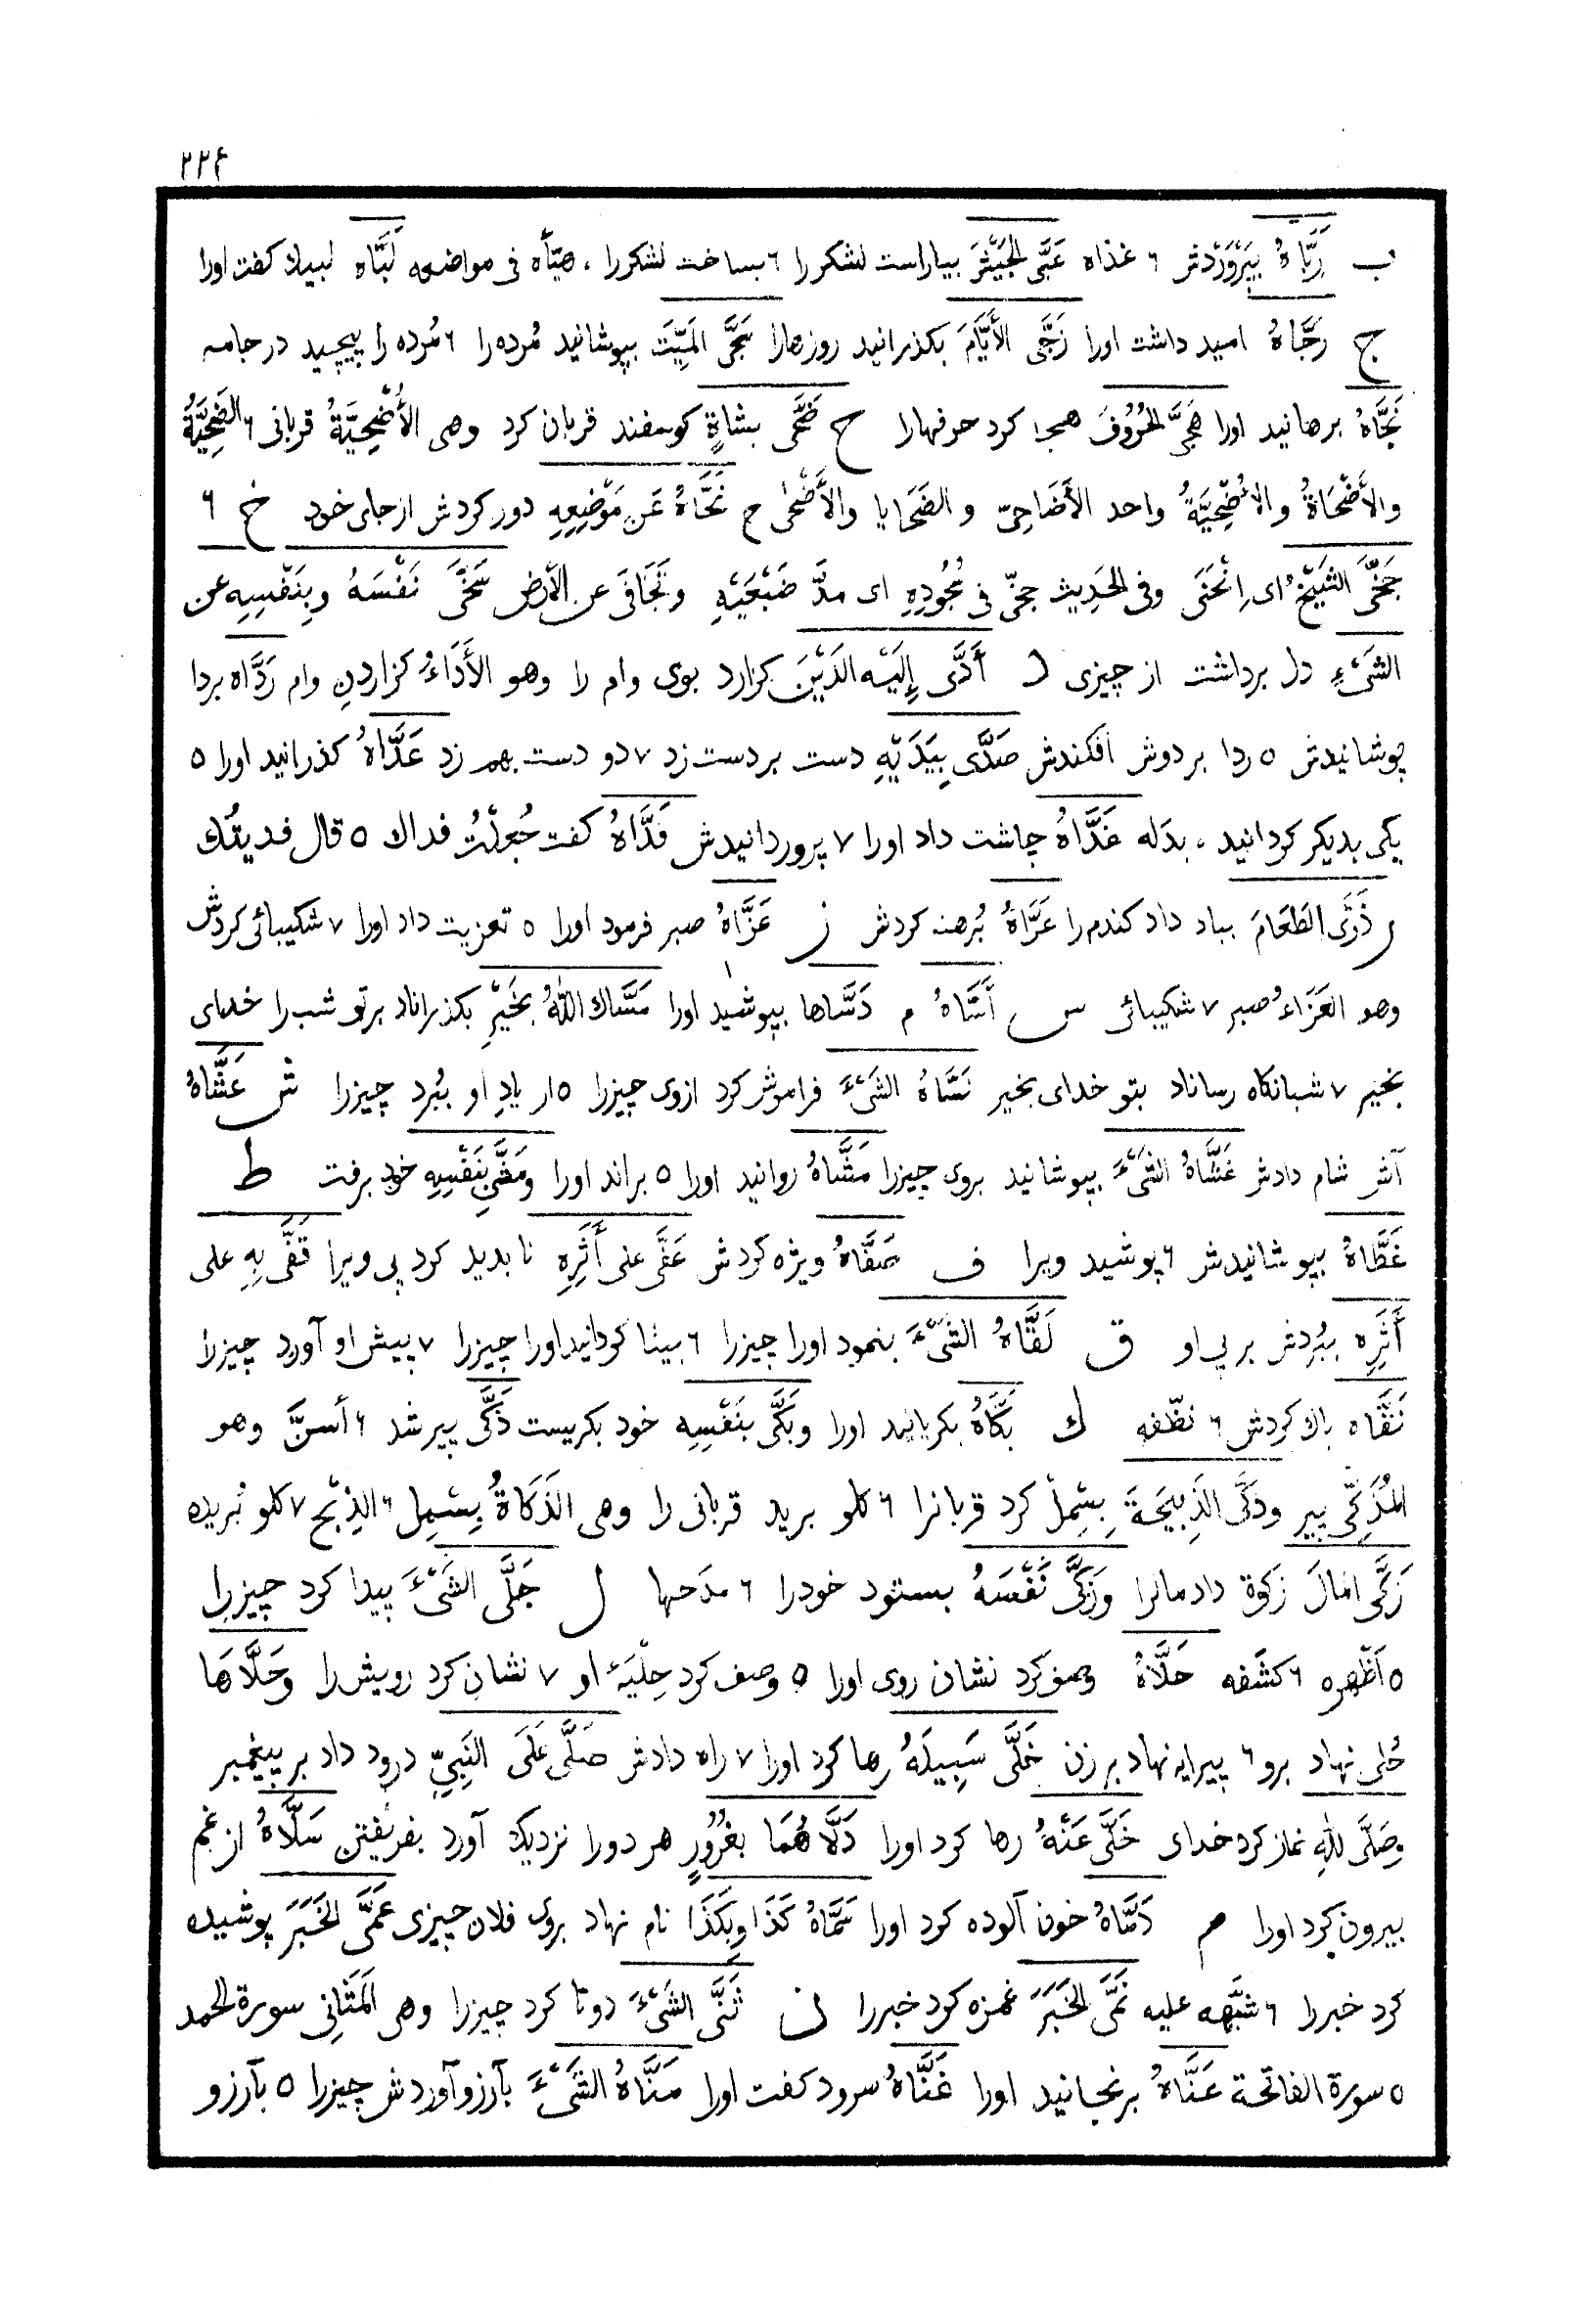 ٢٢۴
ب رَبَّاهُ بِپَرْوَرْدش ۶ غذاه عَبَّى الجَيْشَ بياراست لشكر را ۶ بساخت لشكررا ، هيّأه فى مواضعه لَبَّاه لبيك كفت اورا
ج رَجَّاهُ اميد داشت اورا زَجَّى الأَيَّامَ بكذرانيد روزهارا سَجَّى المَيِّتَ بپوشانيد مُرده را ۶ مُرده را پيچيد در جامه
نَجَّاهُ برهانيد اورا هَجَّى الحُرُوفَ هجا كرد حرفهارا ح ضَحَّى بشاةٍ كوسفند قربان كرد وهى الأُضْحِيَّةُ قربانى ۶ الضَحِيَّةُ
والأَضْحَاةُ والاضْحِيَّةُ واحد الأَضَاحِىّ و الضَحَايا والأَضْحٰى ح نَحَّاهُ عَن مَوْضِعِهِ دور كردش از جاى خود خ ۶
جَخَّى الشَيْخُ اى اِنْحَنَى وفى الحَدِيث جخّى فى سُجُودِهِ اى مدَّ ضَبْعَيْهِ وتَجَافَى عن الأَرض سَخَّى نَفْسَهُ وبِنَفْسِهِ عن
الشَىْءِ دل برداشت از چيزى د أَدَّى إِلَيْه الدَيْنَ بكزارد بوى وام را وهو الأَدَاءُ كزاردن وام رَدَّاه بردا
پوشانيدش ۵ ردا بر دوش افكندش صَدَّى بِيَدَيْهِ دست بر دست زد ٧ دو دست بهم زد عَدَّاهُ كذرانيد اورا ۵
يكى بديكر كردانيد ، بدَله غَدَّاهُ چاشت داد اورا ٧ پروردانيدش فَدَّاهُ كفت جُعِلْتُ فداك ۵ قال فديتُك
ر ذَرَّى الطَعَامَ بباد داد كندم را عَرَّاهُ بُرهنه كردش ز عَزَّاهُ صبر فرمود اورا ۵ تعزيت داد اورا ٧ شكيبائى كردش
وهو العَزَاءُ صبر ٧ شكيبائى س أَسَّاهُ م دَسَّاها بپوشيد اورا مَسَّاك اللّٰهُ بخَيْرٍ بكذراناد بر تو شب را خداى
بخير ٧ شبانكاه رساناد بتو خداى بخير نَسَّاهُ الشَىْءَ فراموش كرد ازوى چيزرا ۵ از يادِ او ببُرد چيزرا ش عَشَّاهُ
آش شام دادش غَشَّاهُ الشَىْءَ بپوشانيد بروى چيزرا مَشَّاهُ روانيد اورا ۵ براند اورا ومَشَّى بِنَفْسِهِ خود برفت ط
غَطَّاهُ بپوشانيدش ۶ پوشيد ويرا ف صَفَّاهُ ويژه كردش عَفَّى على أَثَرِهِ نا بديد كرد پى ويرا قَفَّى بِهِ على
أَثَرِه ببُردش بر پى او ق لَقَّاهُ الشَىْءَ بنمود اورا چيزرا ۶ بينا كردانيد اورا چيزرا ٧ پيش او آورد چيزرا
نَقَّاه پاك كردش ۶ نظّفه ك بَكَّاهُ بكريانيد اورا وبَكَّى بنَفْسِه خود بكريست ذَكَّى پير شد ۶ أسنَّ وهو
المُذَكِّى پير وذكَّى الذَبِيحَةَ بِسْمِل كرد قربانرا ۶ كلو بريد قربانى را وهى الذَكَاةُ بِسْمِل ۶ الذبْح ٧ كلو بُريده
زَكَّى المَالَ زكوة داد مالرا وزَكَّى نَفْسَهُ بستود خودرا ۶ مدَحها ل جَلَّى الشَىْءَ پيدا كرد چيزرا
۵ أَظْهره ۶ كشَفه حَلَّاهُ وصف كرد نشان روى اورا ۵ وصف كرد حِلْيَهٔ او ٧ نشان كرد رويش را وحَلَّاهَا
حُلى نهاد برو ۶ پيرايه نهاد بر زن خَلَّى سَبِيلَهُ رها كرد اورا ٧ راه دادش صَلَّى عَلَى النَبِىّ درود داد بر پيغمبر
وصَلَّى للّٰهِ نماز كرد خداى خَلَّى عَنْهُ رها كرد اورا دَلَّاهُمَا بغُرُورٍ هر دورا نزديك آورد بفريفتن سَلَّاهُ از غم
بيرون كرد اورا م دَمَّاهُ خون آلوده كرد اورا سَمَّاهُ كَذَا وبِكَذَا نام نهاد بروى فلان چيزى عَمَّى الخَبَرَ پوشيده
كرد خبررا ۶ شبَّهه عليه نَمَّى الخَبَرَ غمزه كرد خبررا ن ثَنَّى الشَىْءَ دوتا كرد چيزرا وهى المَثَانِى سورة الحمد
۵ سورة الفاتحة عَنَّاهُ برنجانيد اورا غَنَّاهُ سرود كفت اورا مَنَّاهُ الشَىْءَ بآرزو آوردش چيزرا ۵ بآرزو